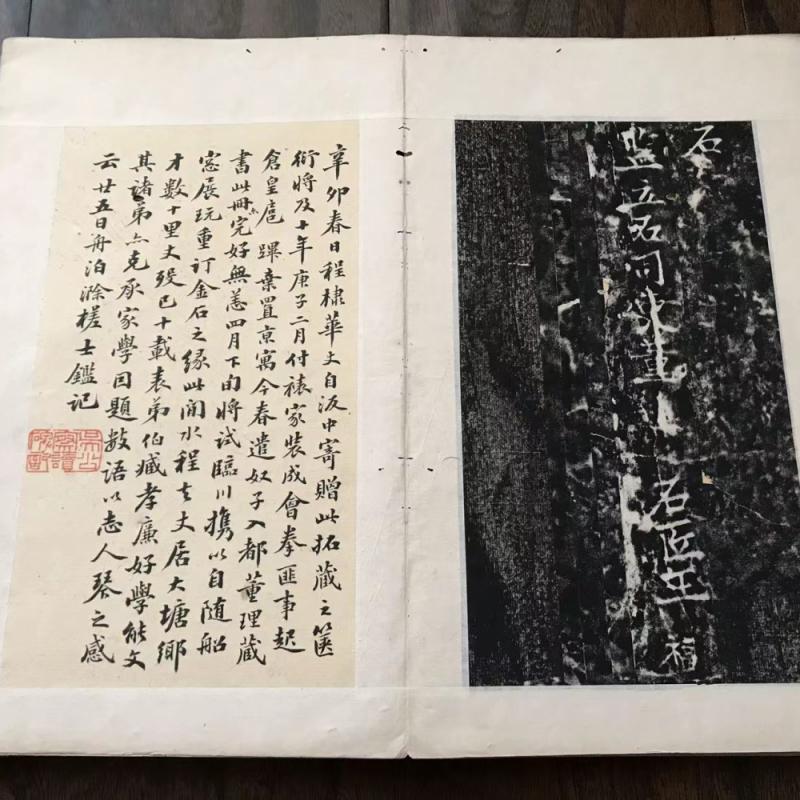 石
監立石同
石匠王
福
辛卯春日程棣華丈自汳中寄贈此拓藏之篋
衍將及十年庚子二月付裱家裝成會拳匪事起
倉皇扈蹕棄置京寓今春遣奴子入都董理藏
書此冊亦完好無恙四月下旬將試臨川攜以自隨船
窓展玩重訂金石之緣此間水程去丈居大塘鄉
才數十里丈歿已十載表弟伯臧孝廉好學能文
其諸弟亦克承家學因題數語以志人琴之感
云廿五日舟泊滁槎士鑑記